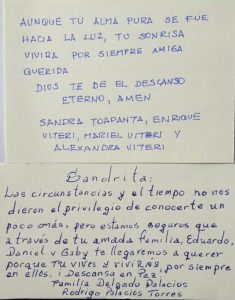 AUNQUE TU ALMA PURA SE FUE
HACIA LA LUZ, TU SONRISA
VIVIRA POR SIEMPRE AMIGA
QUERIDA
DIOS TE DE EL DESCANSO
ETERNO, AMEN
SANDRA TOAPANTA, ENRIQUE
VITERI, MARIEL VITERI Y
ALEXANDRA VITERI
Sandrita:
Las circunstancias y el tiempo no nos
dieron el privilegio de conocerte un
poco más, pero estamos seguros que
a través de tu amada familia, Eduardo,
Daniel y Gaby te llegaremos a querer
porque TU VIVES y VIVIRAS por siempre
en ellos. ¡ Descansa en Paz!
Familia Delgado Palacios
Rodrigo Palacios Torres